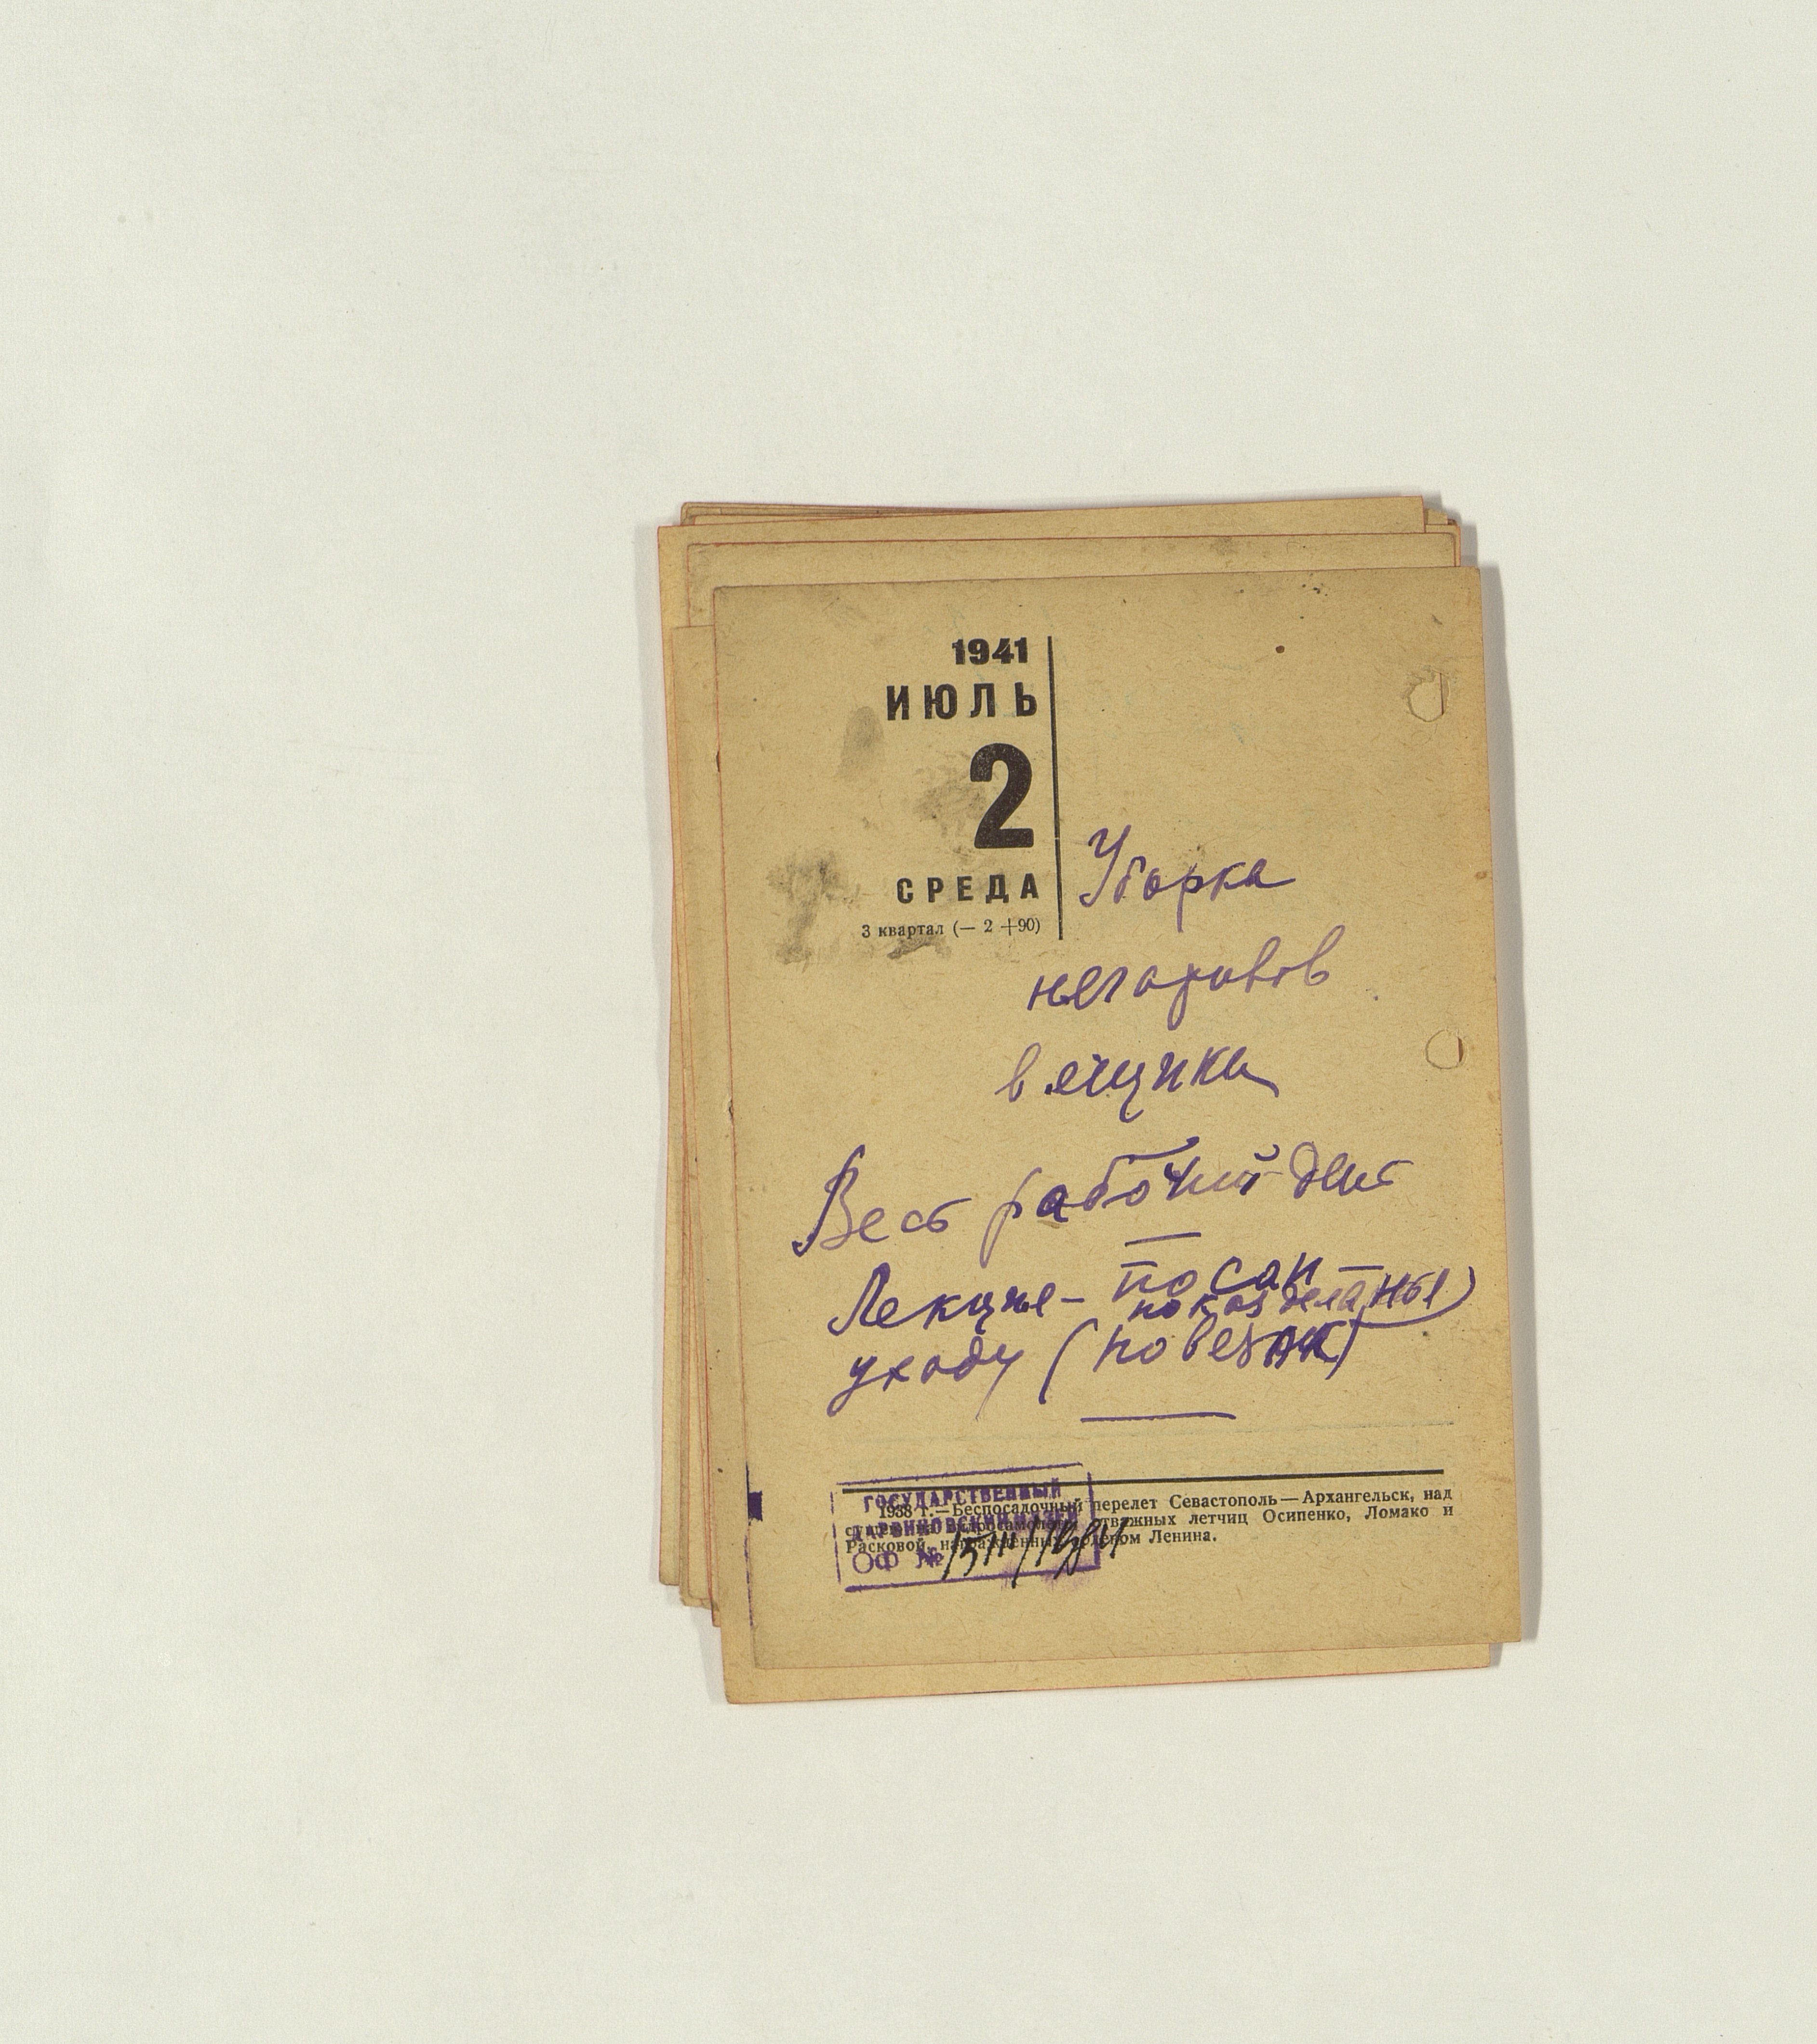 1941
ИЮЛЬ
2
СРЕДА
3 квартал (— 2 +90)
Уборка
негативов
в ящики
Весь рабочий день
Лекция - по сан
уходу (повязки)
1938 г.—Беспосадочный перелет Севастополь—Архангельск, над
отважных летчиц Осипенко, Ломако и
Расковой, награжденных орденом Ленина.
ГОСУДАРСТВЕННЫЙ
ДАРВИНОВСКИЙ МУЗЕЙ
ОФ №